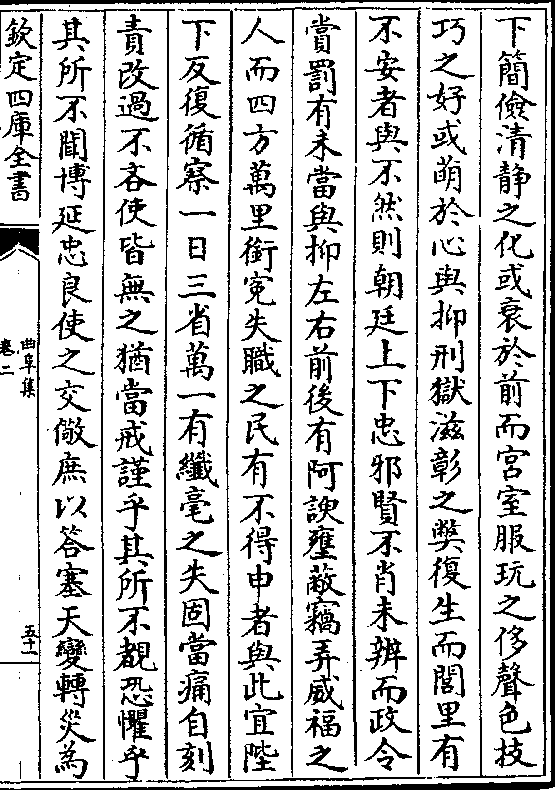 下簡儉清靜之化或衰於前而宮室服玩之侈聲色技
巧之好或萌於心與抑刑獄滋彰之弊復生而閭里有
不安者與不然則朝廷上下忠邪賢不肖未辨而政令
賞罰有未當與抑左右前後有阿諛壅蔽竊弄威福之
人而四方萬里銜寃失職之民有不得申者與此宜陛
下反復循察一日三省萬一有纎毫之失固當痛自刻
責改過不吝使皆無之猶當戒謹乎其所不覩恐懼乎
其所不聞博延忠良使之交儆庶以答塞天變轉災為
欽定四庫全書
曲阜集
卷二
五十一